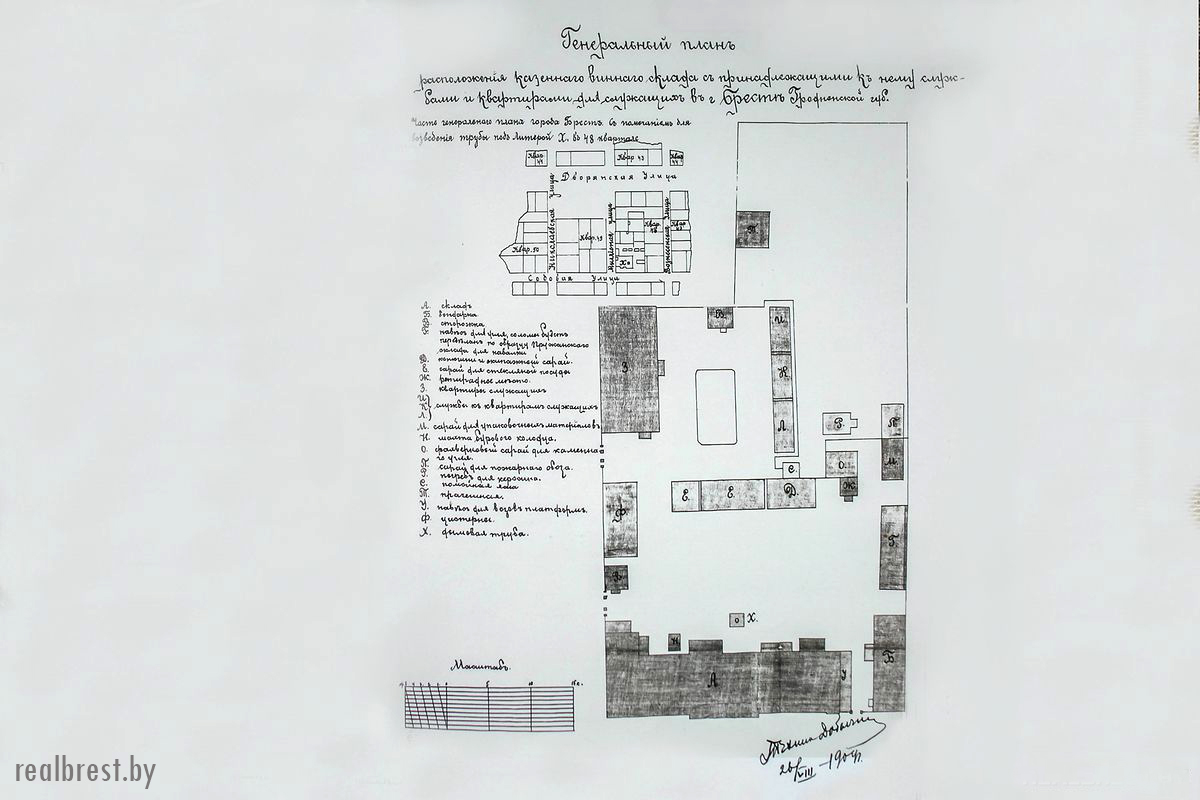 Генеральный планъ
расположенія казеннаго виннаго склада съ принадлежащими къ нему служ-
бами и квартирами для служащихъ въ г Брестѣ Гродненской губ.
Часть генеральнаго плана города Бреста съ помѣченіемъ для
возведенія трубы подъ литерой Х. въ 48 квартале
Квар 44
Квар 43
Квар
Дворянская Улица
Николаевская улица
улица
Вознесенская Улица
Квар. 50
Квар. 49
Квар
Квар
Садовая Улица
А. складъ
Б. бондарня
В. сторожка
Г. навѣсъ для угля, соломы будетъ
по образцу Пружанскаго
склада для навалки
Д. конюшни и экипажный сарай.
Е. сарай для стеклянной посуды
Ж. ретирадное мѣсто.
З. квартиры служащихъ
И
К службы къ квартирамъ служащихъ
Л
М. сарай для упаковочныхъ матеріаловъ
Н. шахта бурового колодца.
О. сарай для каменна-
го угля.
П. сарай для пожарнаго обоза.
Р. погребъ для керосина.
С. помойная яма
Т. прачешная.
У. навѣсъ для возовъ платформъ.
Ф. цистерные.
Х. дымовая труба.
Т
В.
И
З
К
Л
Р.
П
М
О.
С.
Ж
Е.
Е.
Д.
Ф
Г.
В
Х.
Н
А
У
Б
Масштабъ.
20/VIII - 1904г.
realbrest.by